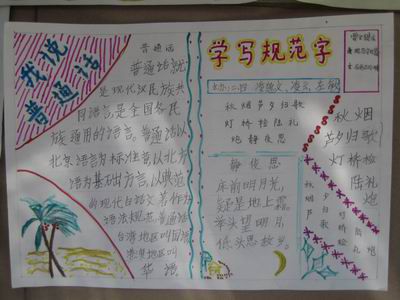 我说
普通话
普通话
普通话就
是现代汉民族共
同语言,是全国各民
族通用的语言。普通话以
北京语音为标准音,以北方
话为基础方言,以典范
的现代白话文著作为
语法规范。普通话
台湾地区叫国语
港澳地区叫
华语
学写规范字
秋烟芦夕归歌
灯桥检陆礼
炮静夜思
静夜思
床前明月光,
疑是地上霜。
举头望明月,
低头思故乡。
秋烟
芦夕归歌
灯桥检
陆礼
炮
秋烟芦
夕归歌
灯桥检
陆礼
炮